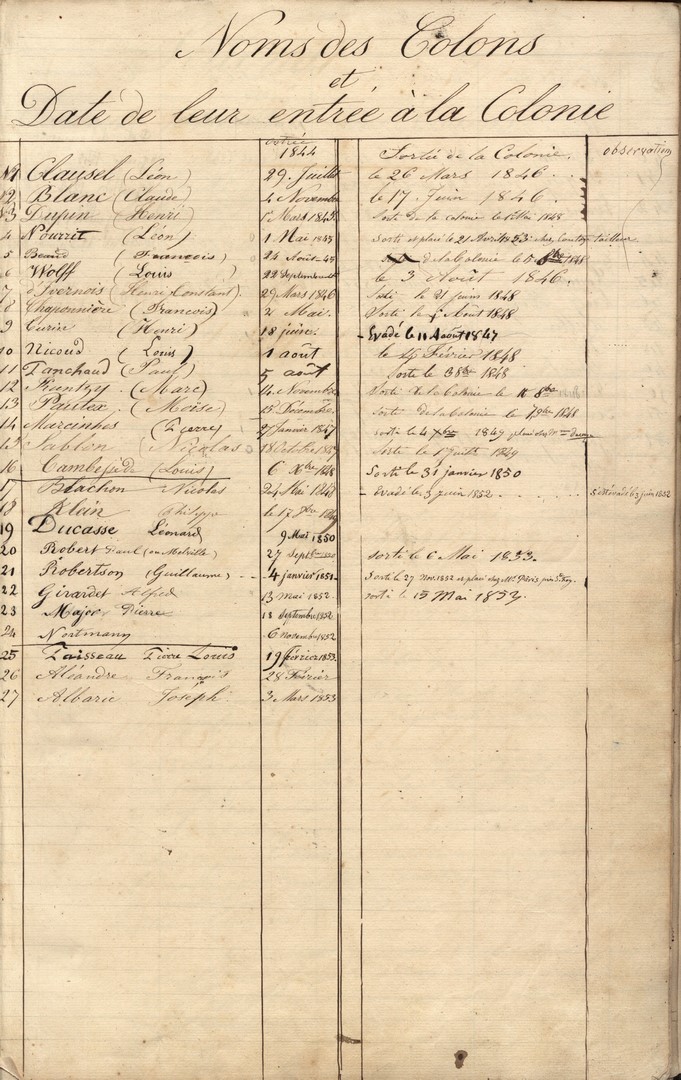 Noms des Colons
et
Date de leur entrée à la Colonie
entrée 1844 Sortie de la Colonie. observation
N1 Clausel (Léon) 29. Juillet le 26 Mars 1846.
2 Blanc (Claude) 4 Novembre le 17 Juin 1846.
3 Dupin (Henri) 1 Mars 1845. Sorti de la colonie le 1848
4 Nourrit (Léon) 1 Mai 1845 Sorti et placé le 21 Avril 1853 chez tailleur
5 Beaud (François) 24 Août 45 de la Colonie le 8bre 1848
6 Wolff (Louis) 22 Septembre le 3 Août 1846.
7 d'Ivernois (Henri Constant). 29 Mars 1846 Sorti le 21 juin 1848
8 Chaponnière (François) 2 Mai. Sorti le Août 1848
9 Curie (Henri) 18 juin. Evadé le 11 Août 1847
10 Nicoud (Louis) 1 août le 14 Février 1848
11 Tanchaud (Paul) 5 août Sorti le 8bre 1848
12 (Marc) 14 Novembre Sorti de la Colonie le 8bre
13 Pautex (Moïse) 15 Décembre. Sorti de la Colonie le 7 9bre 1848
14 (Pierre) 27 Janvier 1847 sorti le 4 1849 placé chez
15 Sablon (Nicolas) 18 Octobre 1847 Sorti le 1 juill. 1849
16 Cambessédès (Louis) 6 Xbre 1848 Sorti le 31 janvier 1850
17 Blachon Nicolas 24 Mai 1848 Evadé le 3 juin 1852 s'est évadé le 3 juin 1852
18 Klein philippe le 17
19 Ducasse Léonard 9 Mai 1850
20 Robert Paul (ou Melville) 27 Sept. 1850 sorti le 6 Mai 1853.
21 Robertson (Guillaume) 4 janvier 1851. Sorti le 27 Nov. 1852 et placé chez Mr.
22 Girardet Alfred 13 mai 1852. sorti le 15 Mai 1853.
23 Major Pierre 18 Septembre 1852
24 Nortmann 6 novembre 1852
25 Taisseau Pierre Louis 19 février 1853.
26 Aléandre François 28 Février
27 Albarie Joseph. 3 Mars 1853